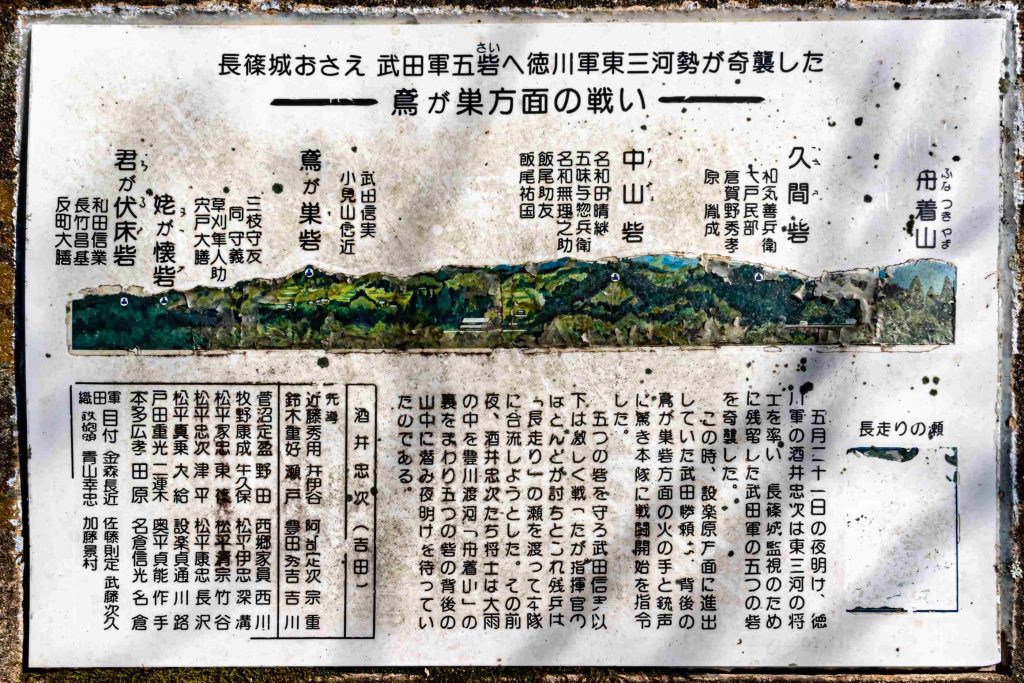 長篠城おさえ 武田軍五砦へ徳川軍東三河勢が奇襲した
さい
鳶が巣方面の戦い
舟着山
ふなつきやま
久間砦
和気善兵衛
倉賀野秀孝
原 胤成
中山砦
名和田晴継
五味与惣兵衛
名和無理之助
飯尾助友
飯尾祐国
鳶が巣砦
武田信実
小見山信近
姥が懐砦
三枝守友
同 守義
草刈隼人助
宍戸大膳
君が伏床砦
和田信業
長竹昌基
反町大膳
長走りの瀬
五月二十一日の夜明け、徳
川軍の酒井忠次は東三河の将
士を率い、長篠城監視のため
に残留した武田軍の五つの砦
を奇襲した。
この時、設楽原方面に進出
していた武田勝頼は、背後の
鳶が巣砦方面の火の手と銃声
に驚き本隊に戦闘開始を指令
した。
五つの砦を守る武田信実以
下は激しく戦ったが指揮官の
ほとんどが討ちとられ残兵は
「長走り」の瀬を渡って本隊
に合流しようとした。その前
夜、酒井忠次たち将士は大雨
の中を豊川渡河「舟着山」の
裏をまわり五つの砦の背後の
山中に潜み夜明けを待ってい
たのである。
酒井忠次(吉田)
先導
近藤秀用 井伊谷 阿部定次 宗重
鈴木重好 瀬戸 豊田秀吉 吉川
菅沼定盈 野田 西郷家員 西川
牧野康成 牛久保 松平伊忠 深溝
松平家忠 東條 松平清宗 竹谷
松平忠次 津平 松平康忠 長沢
松平真乗 大給 設楽貞通 川路
戸田重光 二連木 奥平貞能 作手
本多広孝 田原 名倉信光 名倉
織田軍 目付 金森長近 佐藤則定 武藤次久
鉄砲頭 青山幸忠 加藤景村